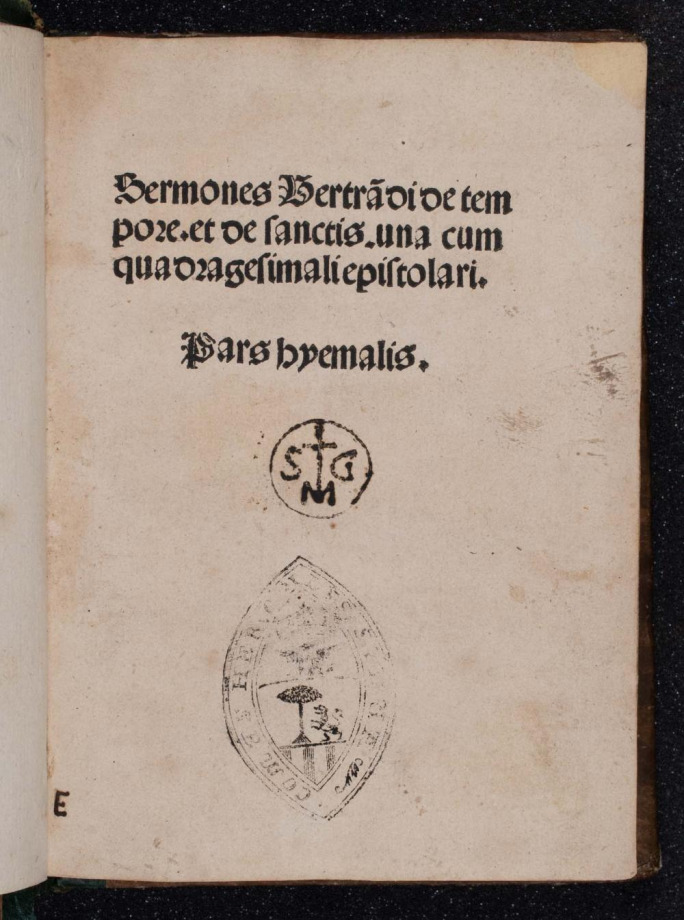 Sermones Bertrãdi de tem
pore.et de sanctis.una cum
quadragesimali epistolari.
Pars hyemalis.
S G
M
E